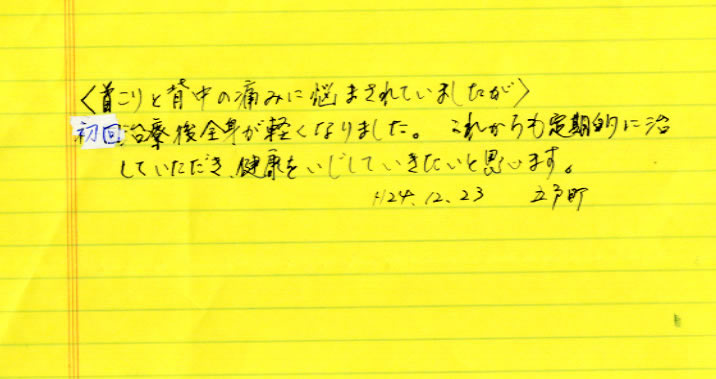 〈首こりと背中の痛みに悩まされていましたが〉
初回治療後全身が軽くなりました。 これからも定期的に治
していただき、健康をいじしていきたいと思います。
H24.12.23 五戸町